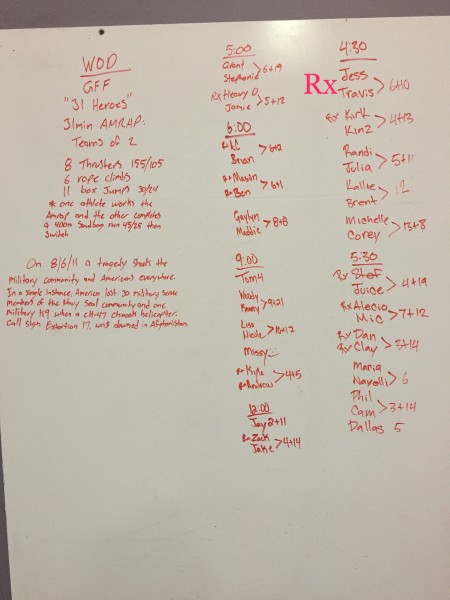 WOD
GFF
"31 Heroes"
31min AMRAP:
Teams of 2
8 Thrusters 155/105
6 rope climbs
11 box Jumps 30/24
* one athlete works the
Amrap and the other completes
a 400m Sandbag run 45/25 then
Switch
On 8/6/11 a tragedy shook the
Military community and Americans everywhere.
In a single instance, America lost 30 military service
members of the Navy Seal community and one
Military K9 when a CH-47 chinook helicopter:
Call sign Extortion 17, was downed in Afghanistan.
5:00
Grant
Stephanie > 6+19
Rx Heavy D
Jamie > 5+12
6:00
Rx KC
Brian > 6+2
Rx Mastin
Rx Ben > 6+1
Gaylyn
Maddie > 8+8
9:00
Tom 4
Woody
> 9+21
Lisa
Nicole > 10+12
Missy
Rx Kyle
Rx Andrew > 4+5
12:00
Jay 2+11
Rx Zack
Jake > 4+14
4:30
Rx
Jess
Travis > 6+10
Rx Kirk
KinZ > 4+13
Randi
Julia > 5+1
Kallie
Brent > 12
Michelle
Corey > 13+8
5:30
Rx Stef
Juice > 4+19
Rx Alecio
Mic > 7+12
Rx Dan
Rx Clay > 3+14
Maria
> 6
Phil
Cam > 3+14
Dallas 5